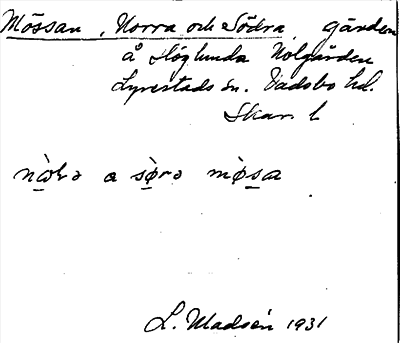 Mössan, Norra och Södra, gärden
å Höglunda Nolgården
Lyrestads sn. Vadsbo hd.
Skar. l
nò̱rə a sø̱̀rə mø̱̀sa
L. Madsén 1931